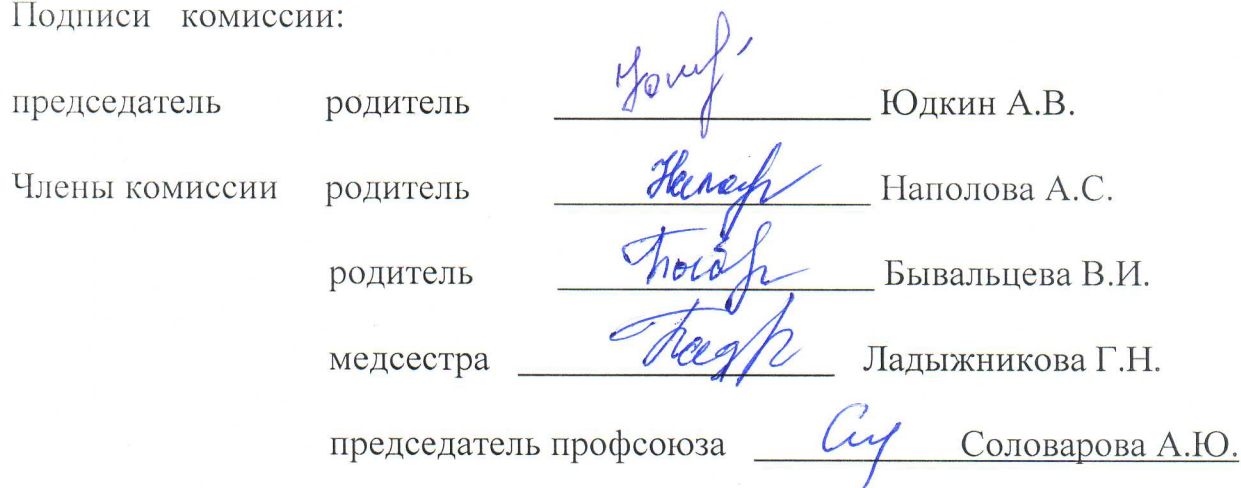 Подписи комиссии:
председатель родитель Юдкин А.В.
Члены комиссии родитель Наполова А.С.
родитель Бывальцева В.И.
медсестра Ладыжникова Г.Н.
председатель профсоюза Соловарова А.Ю.